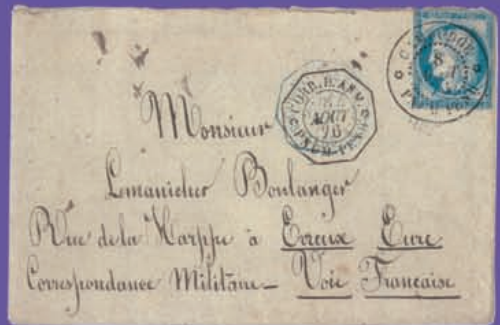 AOUT
76
Monsieur
Lemanicher Boulanger
Rue de la Harppe à Evreux Eure
Correspondance Militaire - Voie Française